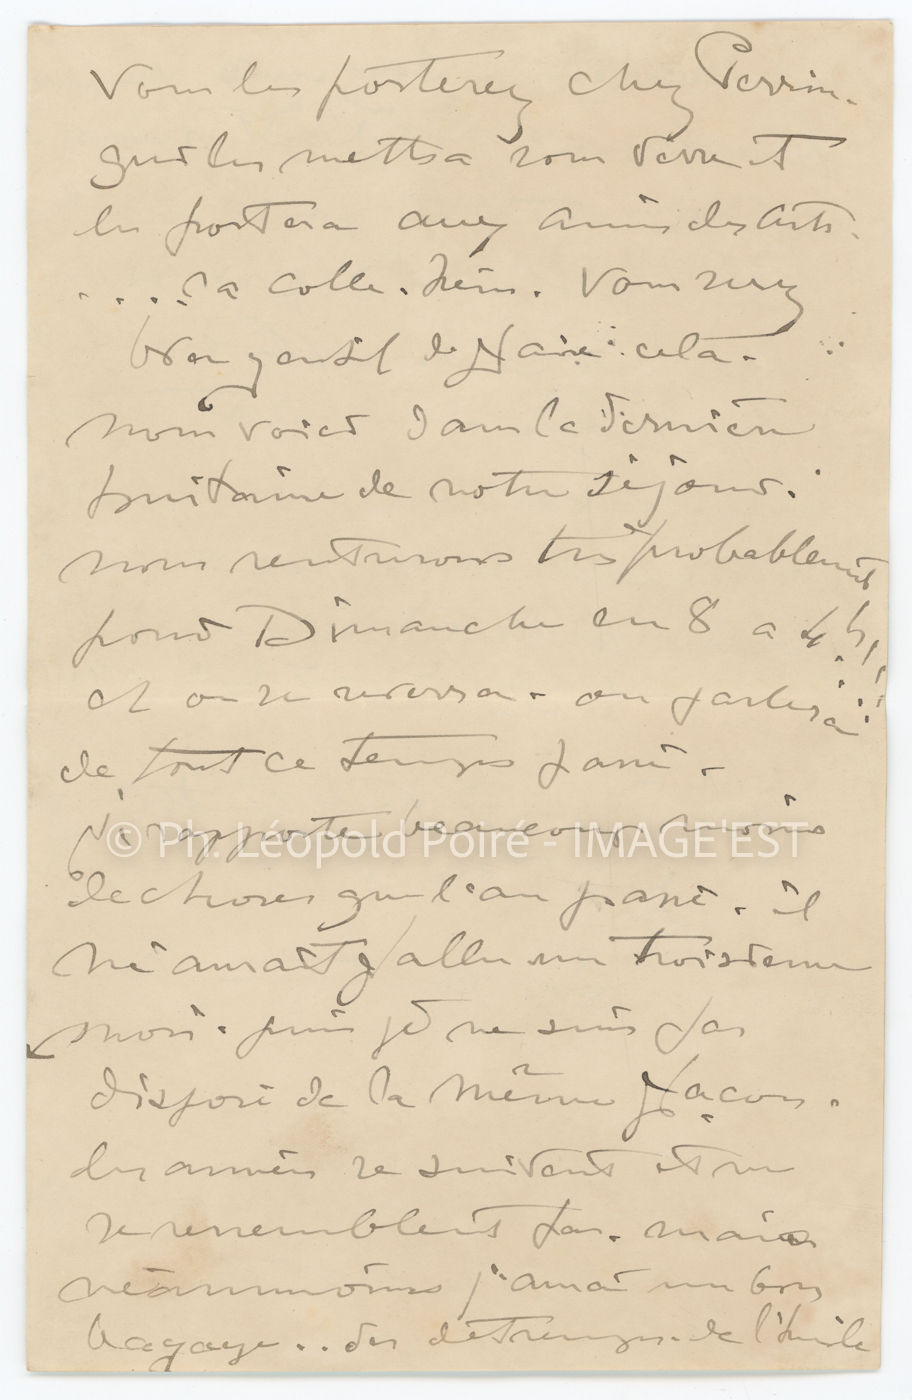 Vous les porterez chez Perrin.
qui les mettra sous verre et
les portera aux amis des arts.
.... la colle. hein. Vous serez
bien gentil de faire cela.
nous voici dans la dernière
quinzaine de notre séjour.
nous rentrerons très probablement
pour Dimanche en 8 a 4 h!!
et on se reverra. on parlera
de tout ce temps passé.
j'ai rapporté beaucoup moins
© Ph. Léopold Poiré - IMAGE'EST
de choses que l'an passé. il
m'aurait fallu un troisième
mois. puis je ne suis pas
disposé de la même façon.
les années se suivent et ne
se ressemblent pas. mais
néanmoins j'aurai un bon
bagage... des détrempes. de l'huile